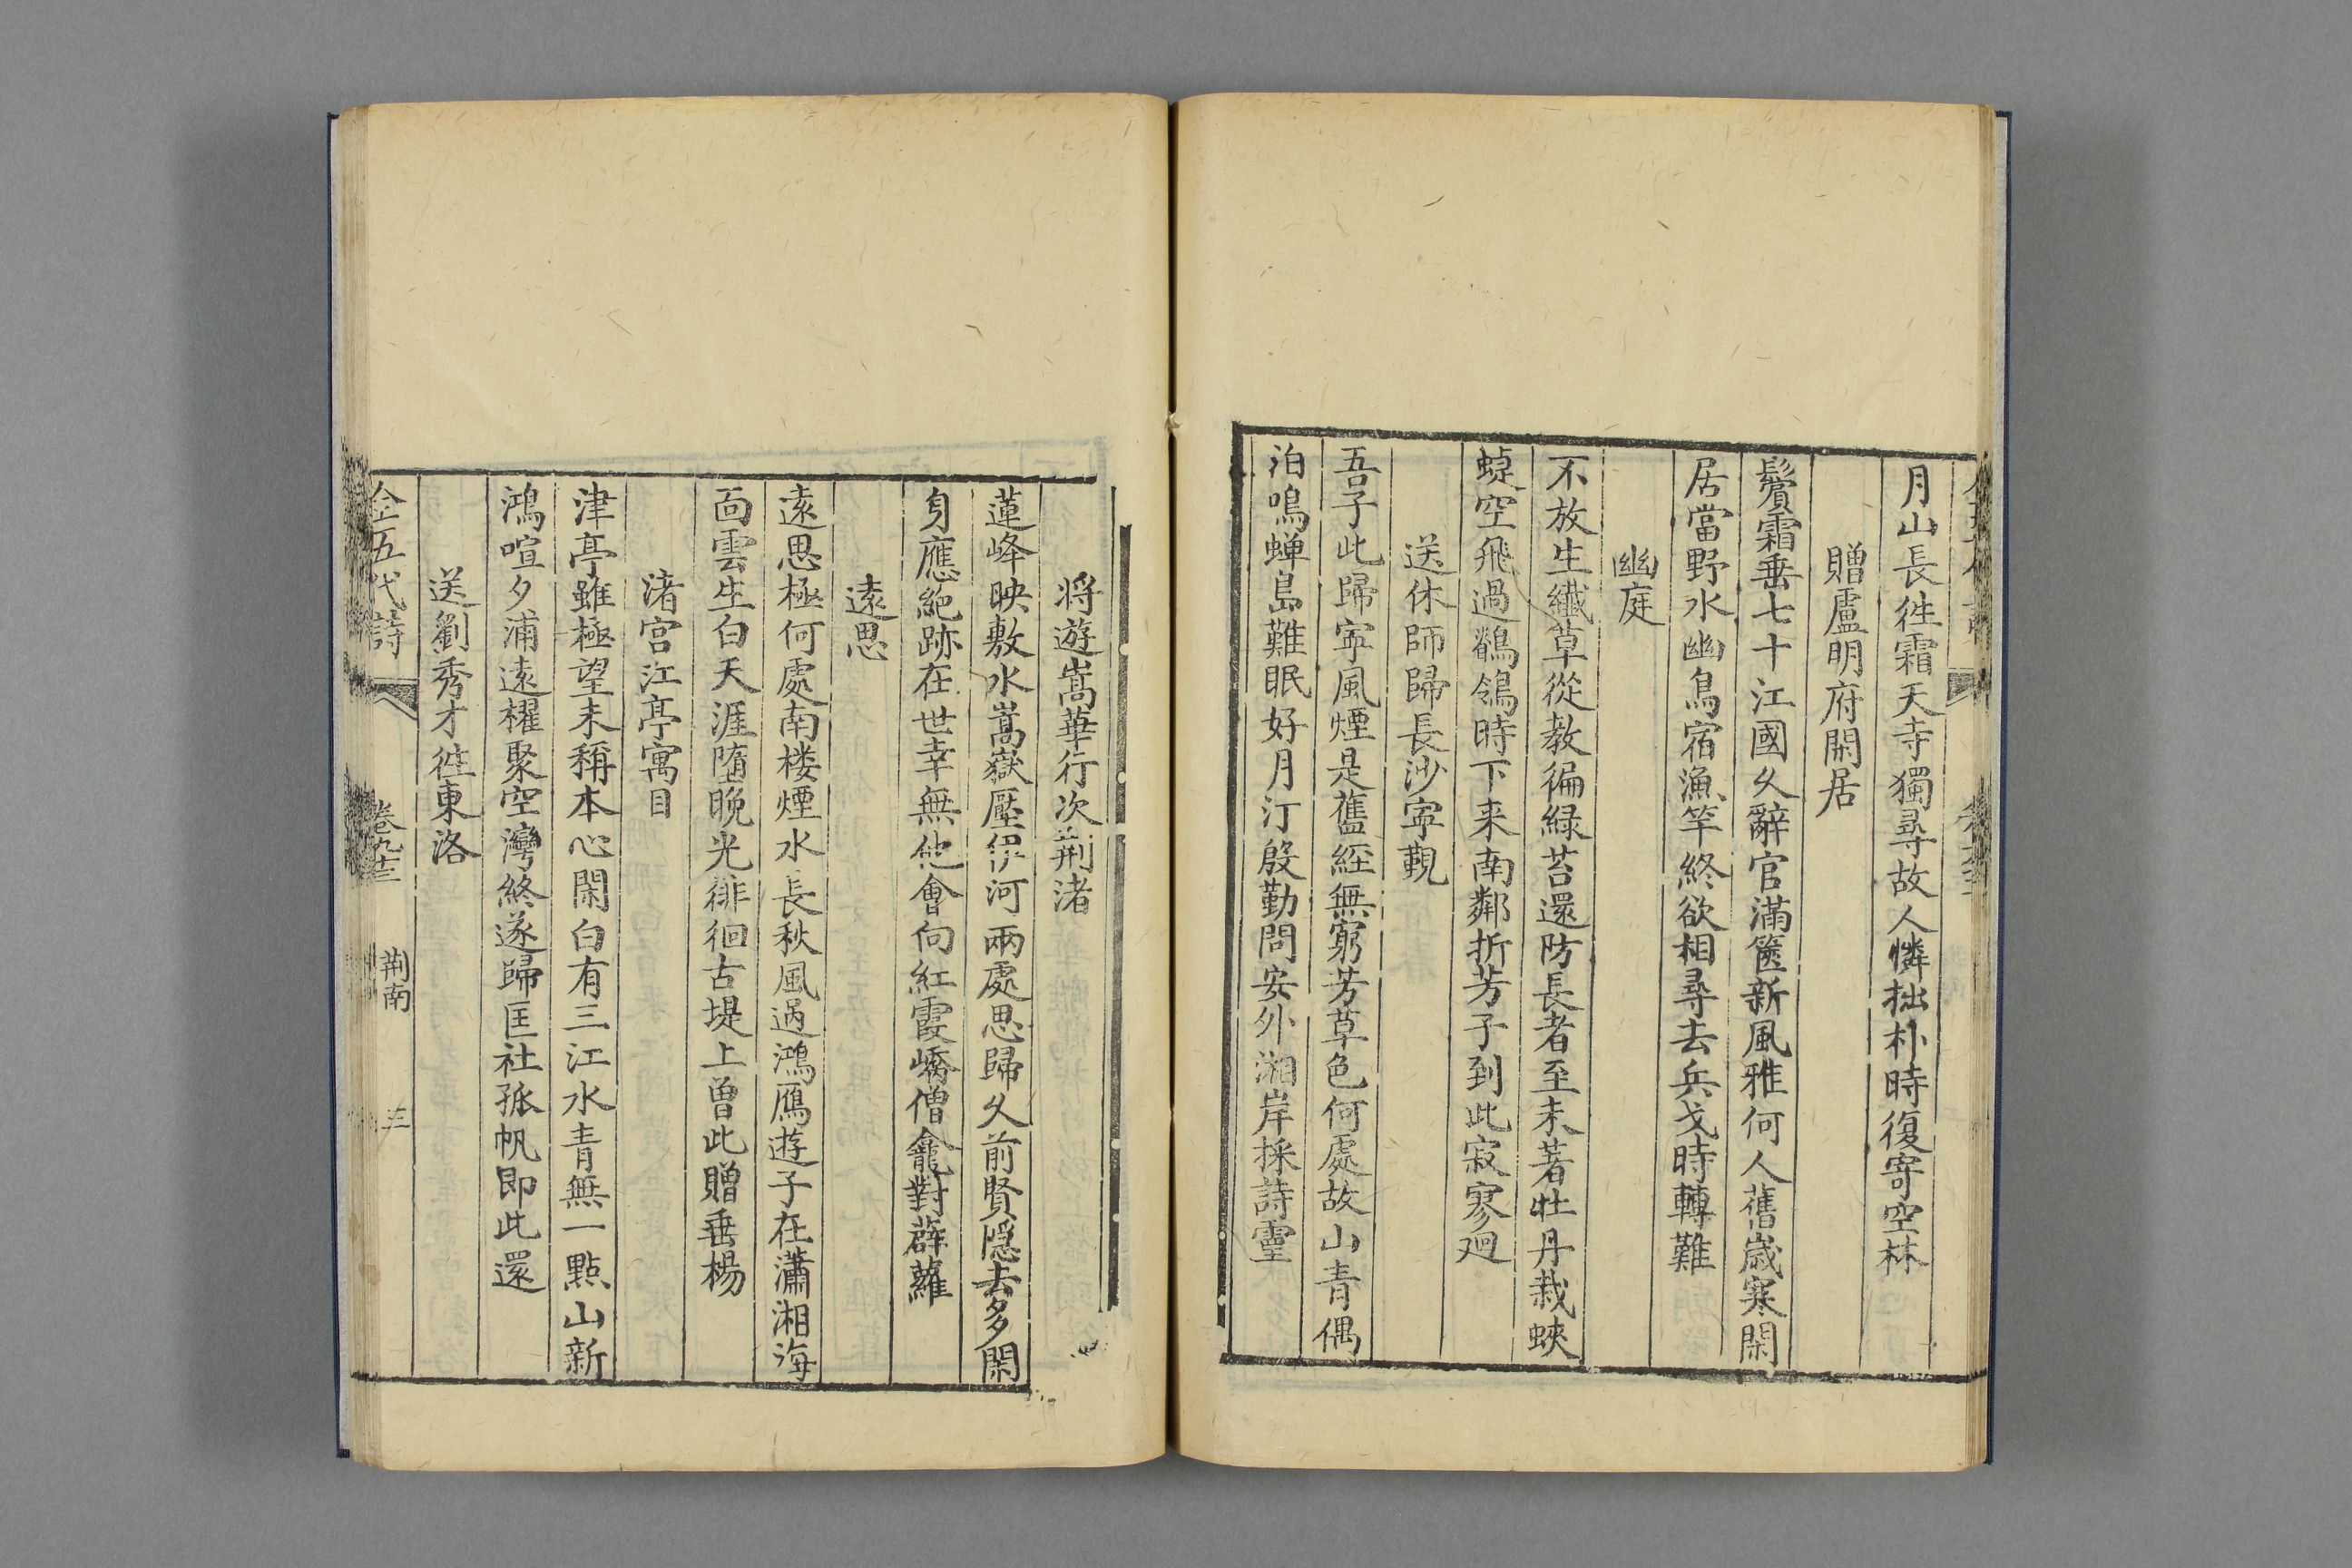 月山長徃霜天寺獨尋故人憐拙朴時復寄空林
贈盧明府閑居
鬢霜垂七十江國久辭官滿篋新風雅何人舊歲寒閑
居當野水幽鳥宿漁竿終欲相尋去兵戈時轉難
幽庭
不放生纎草從教徧緑苔還防長者至未著牡丹栽蛺
蝶空飛過鶺鴒時下来南鄰折芳子到此寂寥廻
送休師歸長沙寧覲
吾子此歸寧風煙是舊經無窮芳草色何處故山青偶
泊鳴蝉島難眠好月汀殷勤問安外湘岸採詩靈
将遊嵩華行次荆渚
蓮峰映敷水嵩嶽壓伊河兩處思歸久前賢隠去多閑
身應絶跡在世幸無他會向紅霞嶠僧龕對薜蘿
遠思
遠思極何處南楼煙水長秋風過鴻鴈遊子在瀟湘海
面雲生白天涯墮晩光徘徊古堤上曽此贈垂楊
渚宮江亭寓目
津亭雖極望未稱本心閑白有三江水青無一點山新
鴻喧夕浦遠櫂聚空灣終遂歸匡社孤帆即此還
送劉秀才徃東洛
全五代詩
卷九十三
荆南
三